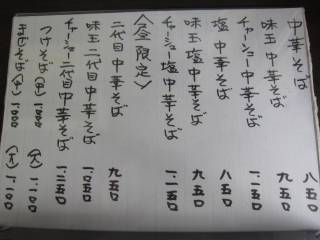 中華そば 八五〇
味玉中華そば 九五〇
チャーシュー中華そば 一、一五〇
塩中華そば 八五〇
味玉塩中華そば 九五〇
チャーシュー塩中華そば 一、一五〇
〈昼限定〉
二代目中華そば 九五〇
味玉二代目中華そば 一、〇五〇
チャーシュー二代目中華そば 一、二五〇
つけそば(中)1,000 (大)1,100
まぜそば(中)1,000 (大)1,100